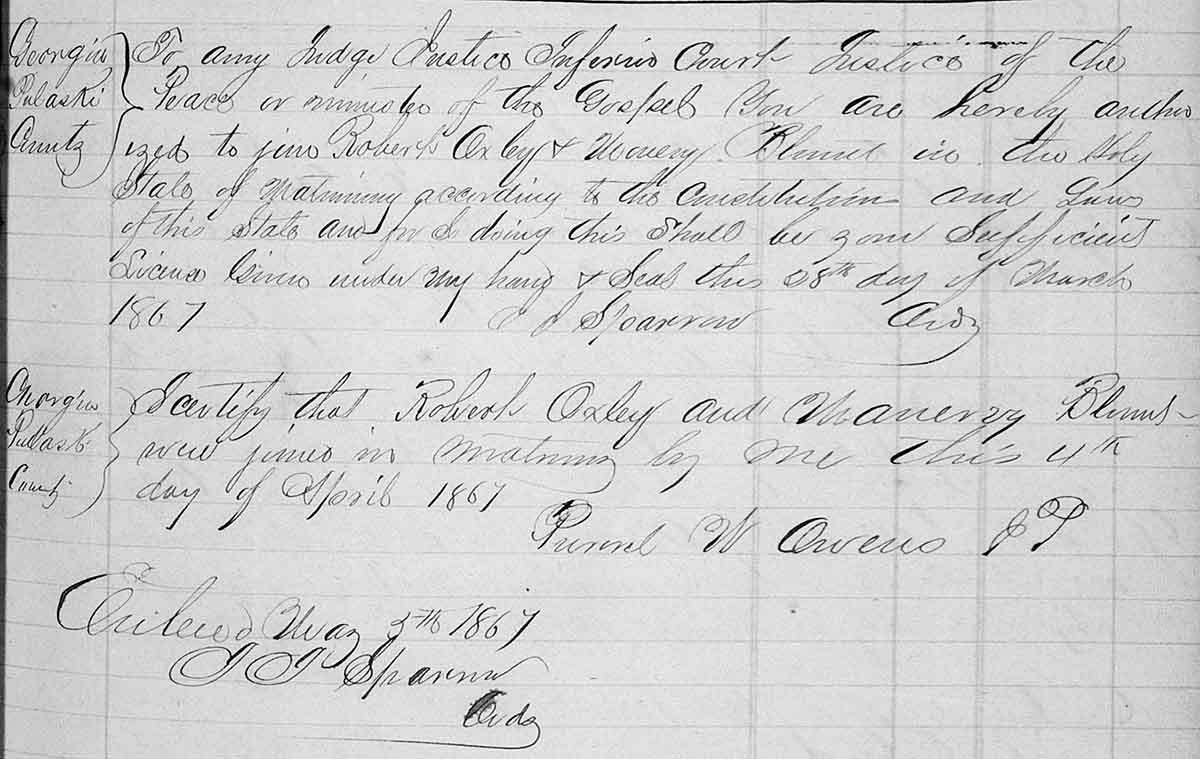 Georgia
Pulaski
County
To any Judge Justice Inferior Court Justice of the
Peace or minister of the Gospel You are hereby autho
ized to join Robert Oxley & Manervy Blount in the Holy
State of Matrimony according to the Constitution and Laws
of this State and for So doing this Shall be your Sufficient
License Given under my hand & Seal this 28th day of March
1867 J J Sparrow Ordy
Georgia
Pulaski
County
I certify that Robert Oxley and Manervy Blount
were joined in matrimony by me this 4th
day of April 1867
W Owens J P
Entered May 3th 1867
J J Sparrow
Ordy